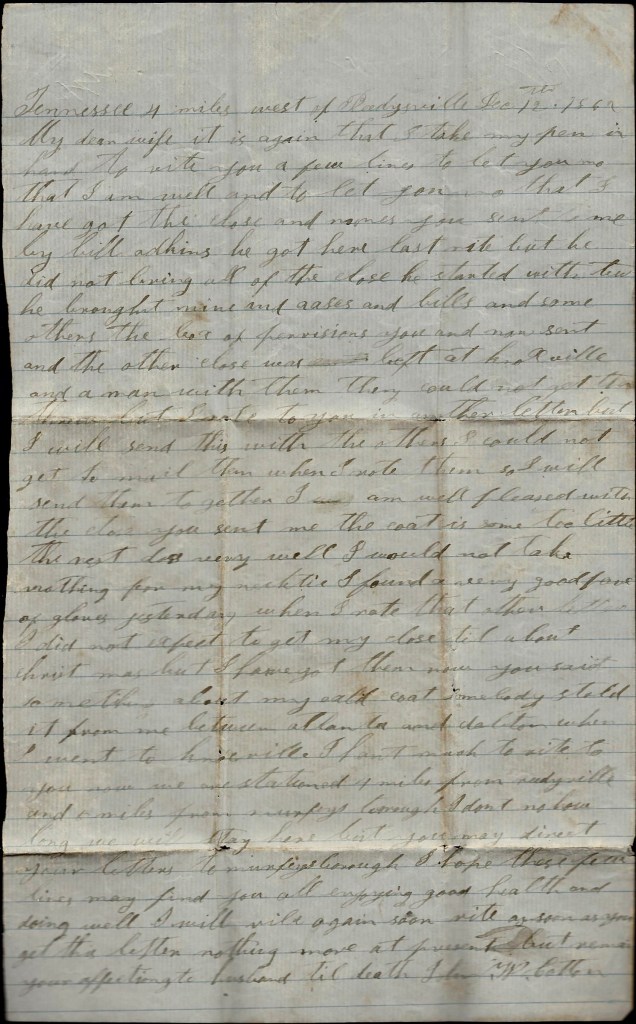 Tennessee 4 miles west of Readysville Dec 12th 1862
My dear wife it is again that I take my pen in
hand to rite you a few lines to let you no
that I am well and to let you no that I
have got the close and you sent me
by bill adkins he got here last nite but he
did not bring all of the close he started with
he brought mine and asases and bills and some
others the box of pervisions you and sent
and the other close was left at knoxville
and a man with them they could not get
I rote to you in another letter but
I will send this with the others I could not
get to mail them when I rote them so I will
send them to gether I am well pleased with
the close you sent me the coat is some too little
the rest dos very well I would not take
nothing for my necktie I found a very good pare
of gloves yesterday when I rote that other
I did not expect to get my close til about
christ mas but I have got them now you said
something about my coat somebody stold
it from me between atlanta and dalton when
I went to knoxville I hant much to rite to
you now we are stationed 4 miles from readyville
and miles from murfeysborough I dont no how
long we will stay here but you may direct
your letters to murfeysborough I hope these few
lines may find you all enjoying good health and
doing well I will rite again soon rite as soon as you
get this letter nothing more at present but remain
your affectionate husband til death John W. Cotton